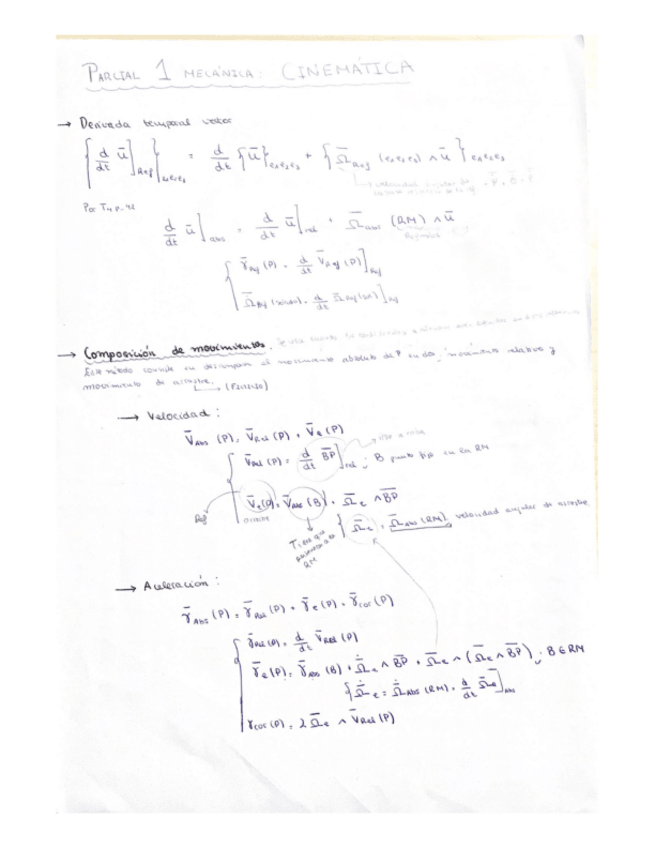 PARCIAL 1 MECÁNICA: CINEMÁTICA
→ Derivada temporal vector
{d/dt ū]Ref}e₁e₂e₃ = d/dt {ū}e₁e₂e₃ + {Ω̄Ref (e₁e₂e₃) ∧ ū}e₁e₂e₃
velocidad angular de
d/dt ū]abs = d/dt ū]rel + Ω̄abs (RM) ∧ ū
γ̄Ref (P) = d/dt V̄Ref (P)]Ref
d/dt Ω̄Ref]Ref
→ Composición de movimientos.
Este método consiste en descomponer el movimiento absoluto de P en dos, movimiento relativo y
movimiento de arrastre.
→ Velocidad:
V̄Abs (P) = V̄Rel (P) + V̄e (P)
V̄Rel (P) = d/dt B̄P̄]rel ; B punto fijo en RM
V̄e(P) = V̄Abs (B) + Ω̄e ∧ B̄P̄
Ω̄e = Ω̄Abs (RM), velocidad angular de arrastre
Tiene que
RM
→ Aceleración:
γ̄Abs (P) = γ̄Rel (P) + γ̄e (P) + γ̄cor (P)
γ̄Rel (P) = d/dt V̄Rel (P)
γ̄e (P) = γ̄Abs (B) + Ω̄̇e ∧ B̄P̄ + Ω̄e ∧ (Ω̄e ∧ B̄P̄) ; B ∈ RM
Ω̄̇e = Ω̄̇Abs (RM) = d/dt Ω̄e]Abs
γcor (P) = 2 Ω̄e ∧ V̄Rel (P)